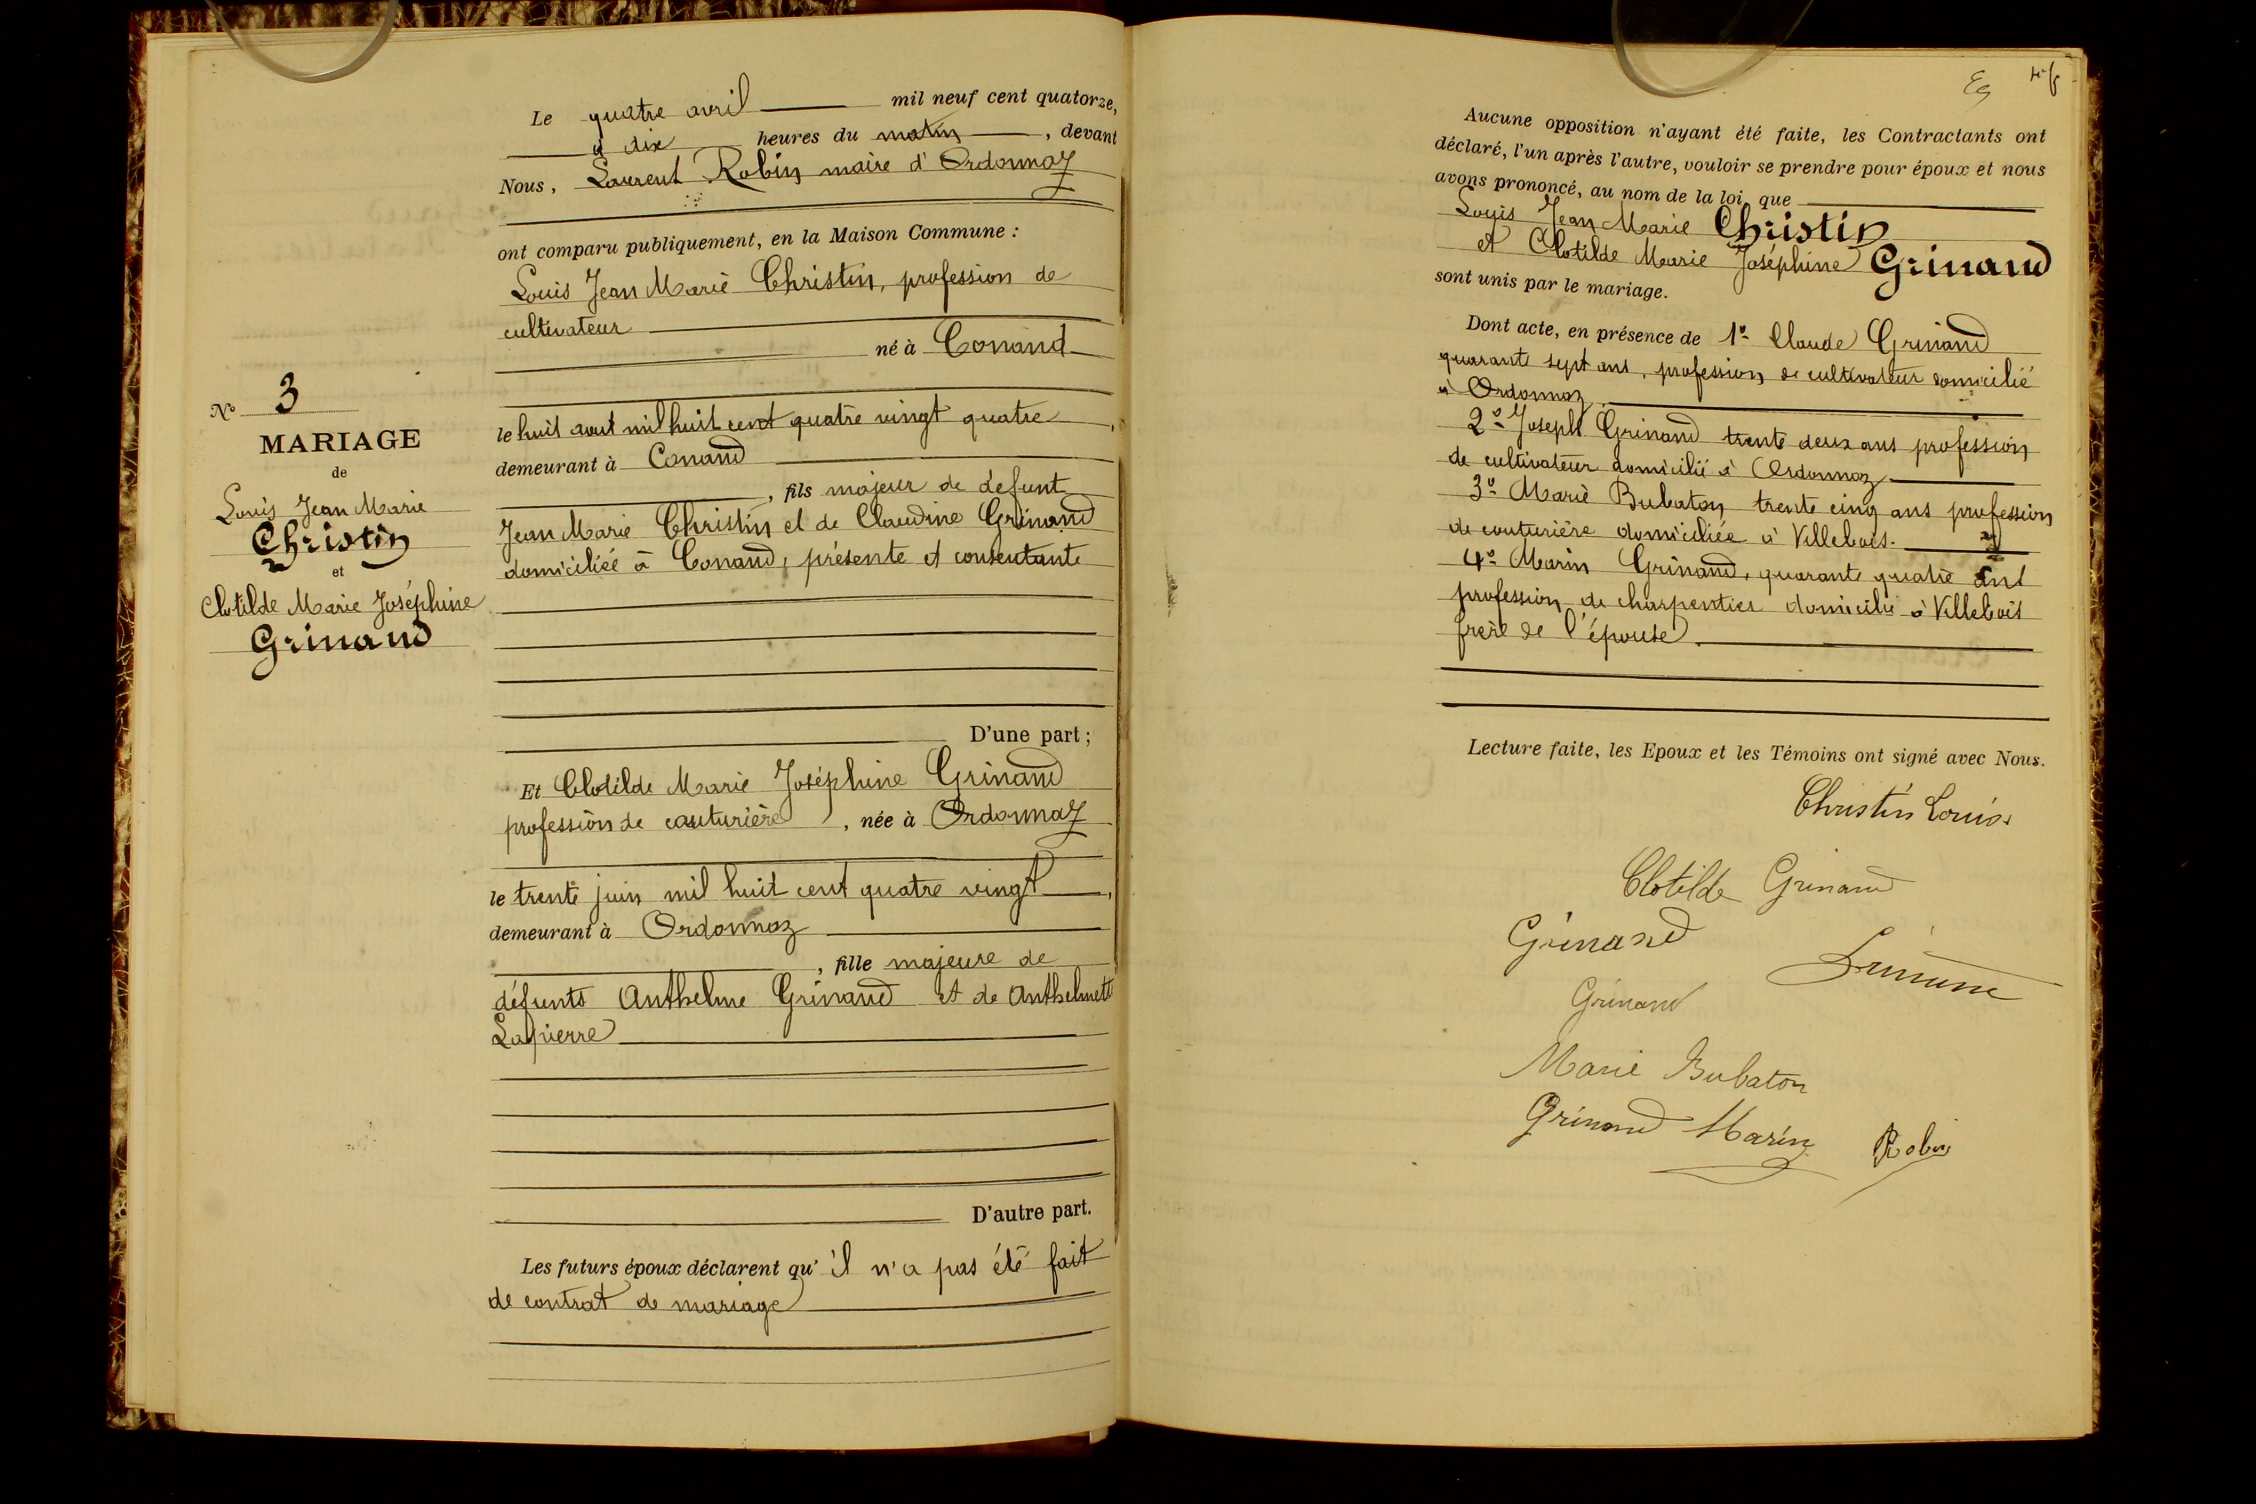 N° 3
MARIAGE
de
Louis Jean Marie
Christin
et
Clotilde Marie Joséphine
Grinand
Le quatre avril mil neuf cent quatorze,
à dix heures du matin, devant
Nous, Laurent Robin maire d'Ordonnaz
ont comparu publiquement, en la Maison Commune :
Louis Jean Marie Christin, profession de
cultivateur
né à Conand
le huit aout mil huit cent quatre vingt quatre,
demeurant à Conand
, fils majeur de défunt
Jean Marie Christin et de Claudine Grinand
domiciliée à Conand, présente et consentante
D'une part ;
Et Clotilde Marie Joséphine Grinand
profession de couturière, née à Ordonnaz
le trente juin mil huit cent quatre vingt,
demeurant à Ordonnaz
, fille majeure de
défunts Anthelme Grinand et de Anthelmette
Lapierre
D'autre part.
Les futurs époux déclarent qu'il n'a pas été fait
de contrat de mariage
Aucune opposition n'ayant été faite, les Contractants ont
déclaré, l'un après l'autre, vouloir se prendre pour époux et nous
avons prononcé, au nom de la loi, que
Louis Jean Marie Christin
et Clotilde Marie Joséphine Grinand
sont unis par le mariage.
Dont acte, en présence de 1° Claude Grinand
quarante sept ans, profession de cultivateur domicilié
à Ordonnaz
2° Joseph Grinand trente deux ans profession
de cultivateur domicilié à Ordonnaz
3° Marie Bubaton trente cinq ans profession
de couturière domiciliée à Villebois.
4° Marin Grinand, quarante quatre ans
profession de charpentier domicilié à Villebois
frère de l'épouse.
Lecture faite, les Epoux et les Témoins ont signé avec Nous.
Christin Louis
Clotilde Grinand
Grinand
Grinand
Marie Bubaton
Grinand Marin
Robin